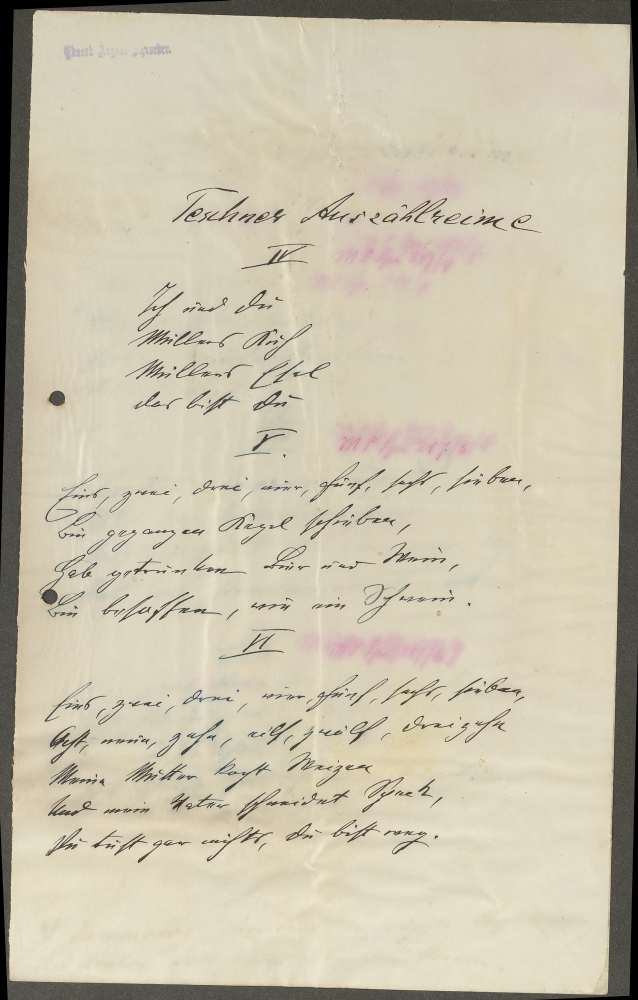 Teschner Auszählreime
IV
Ich und du
Müllers Kuh
Müllers Esel
das bist du
V.
Eins, zwei, drei, vier, fünf, sechs, sieben,
Bin gegangen Kegel schieben,
Hab getrunken Bier und Wein,
Bin besoffen, wie ein Schwein.
VI
Eins, zwei, drei, vier, fünf, sechs, sieben,
Acht, neun, zehn, eilf, zwölf, dreizehn
Meine Mutter kocht Weizen
Und mein Vater schneidet Speck,
Du tust gar nichts, du bist weg.